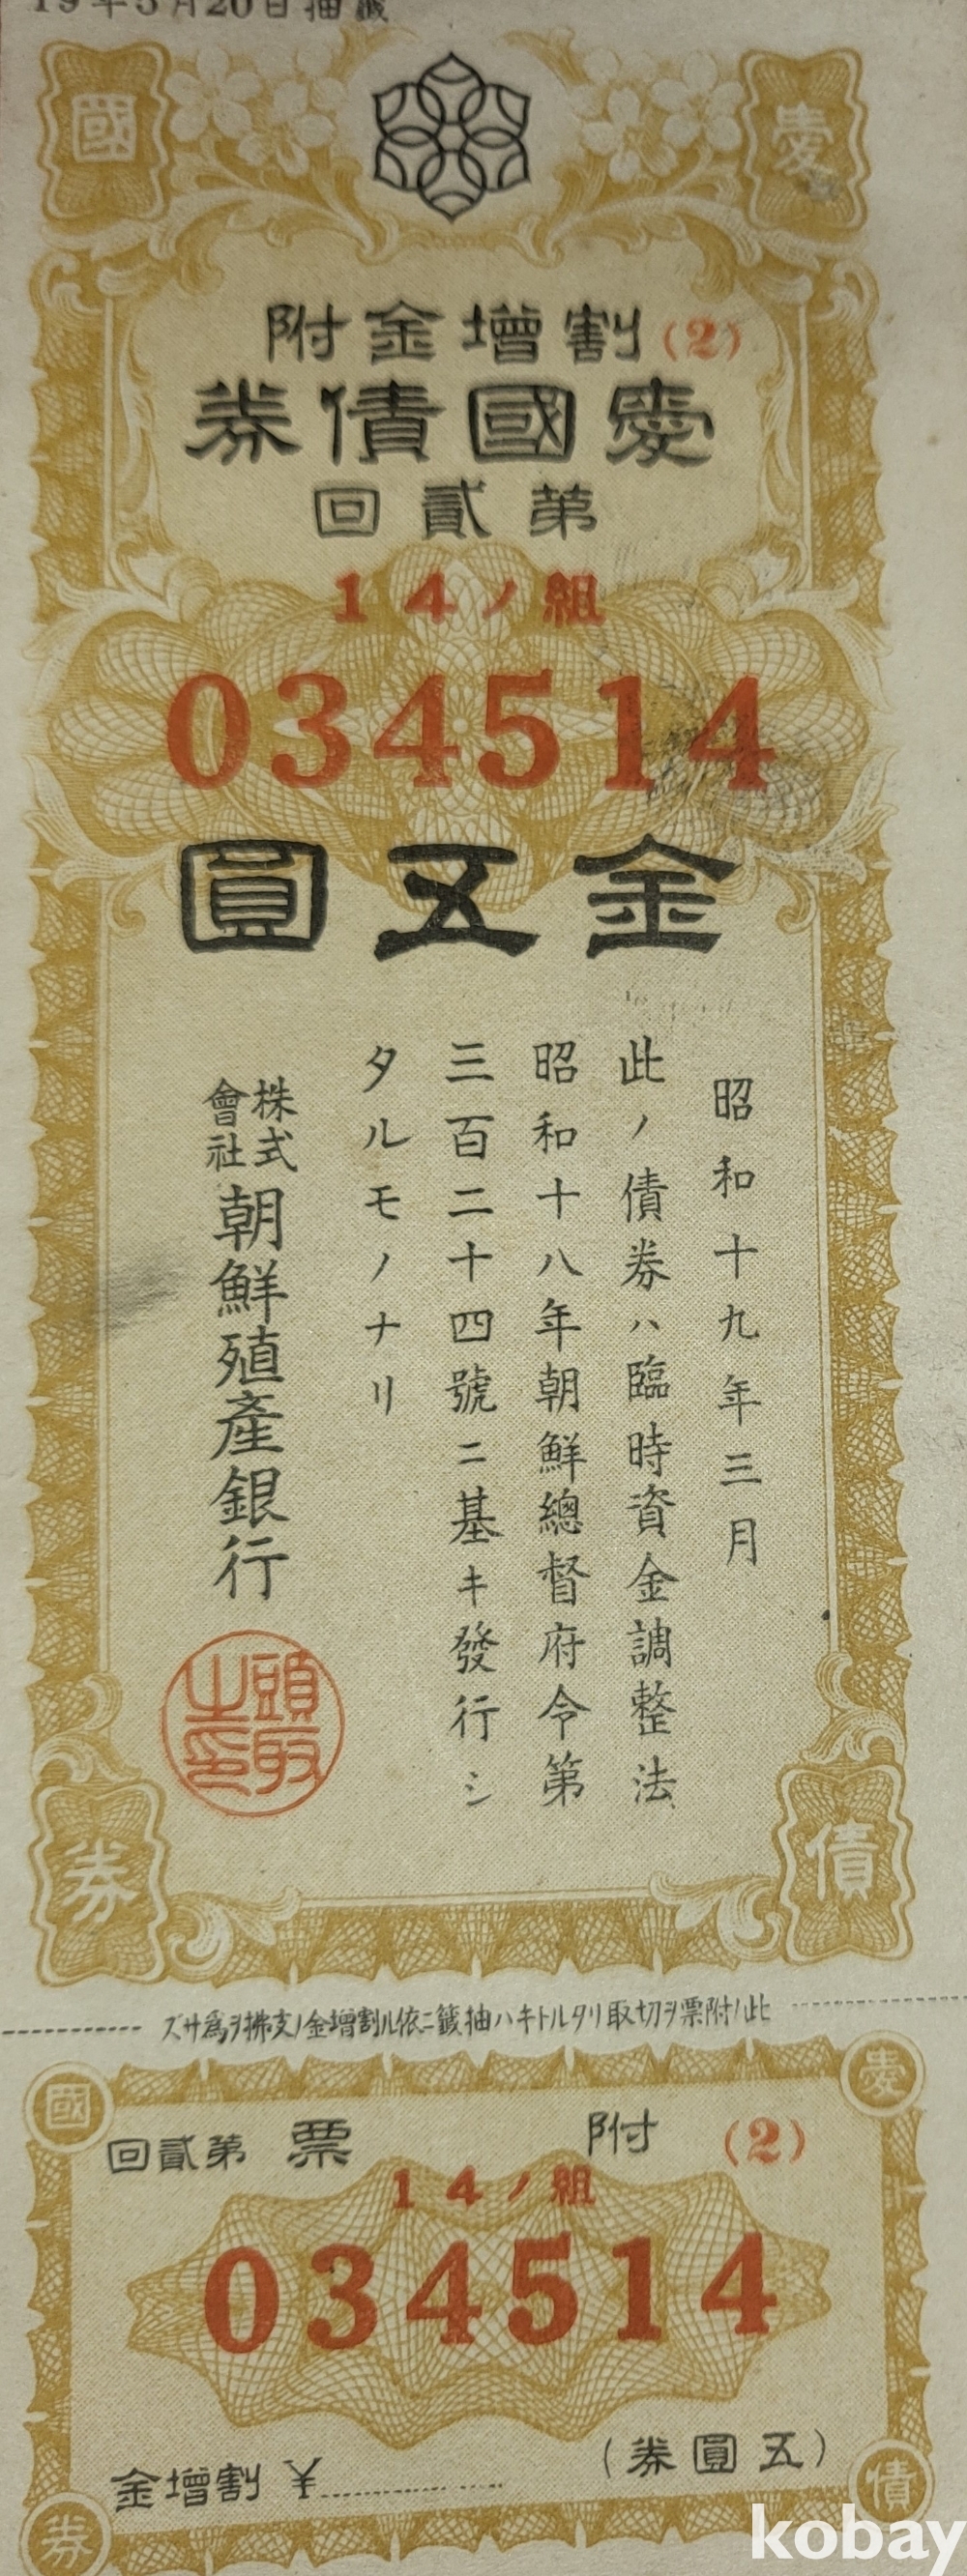 19年5月20日抽籤
愛
國
(2) 割增金附
愛國債券
第貳回
14ノ組
034514
金五圓
昭和十九年三月
此ノ債券ハ臨時資金調整法
昭和十八年朝鮮總督府令第
三百二十四號ニ基キ發行シ
タルモノナリ
株式會社朝鮮殖產銀行
頭取之印
債
券
此ノ附票ヲ切取リタルトキハ抽籤ニ依ル割增金ノ支拂ヲ爲サズ
愛
國
(2) 附票 第貳回
14ノ組
034514
(五圓券)
割增金 ¥
債
券
kobay